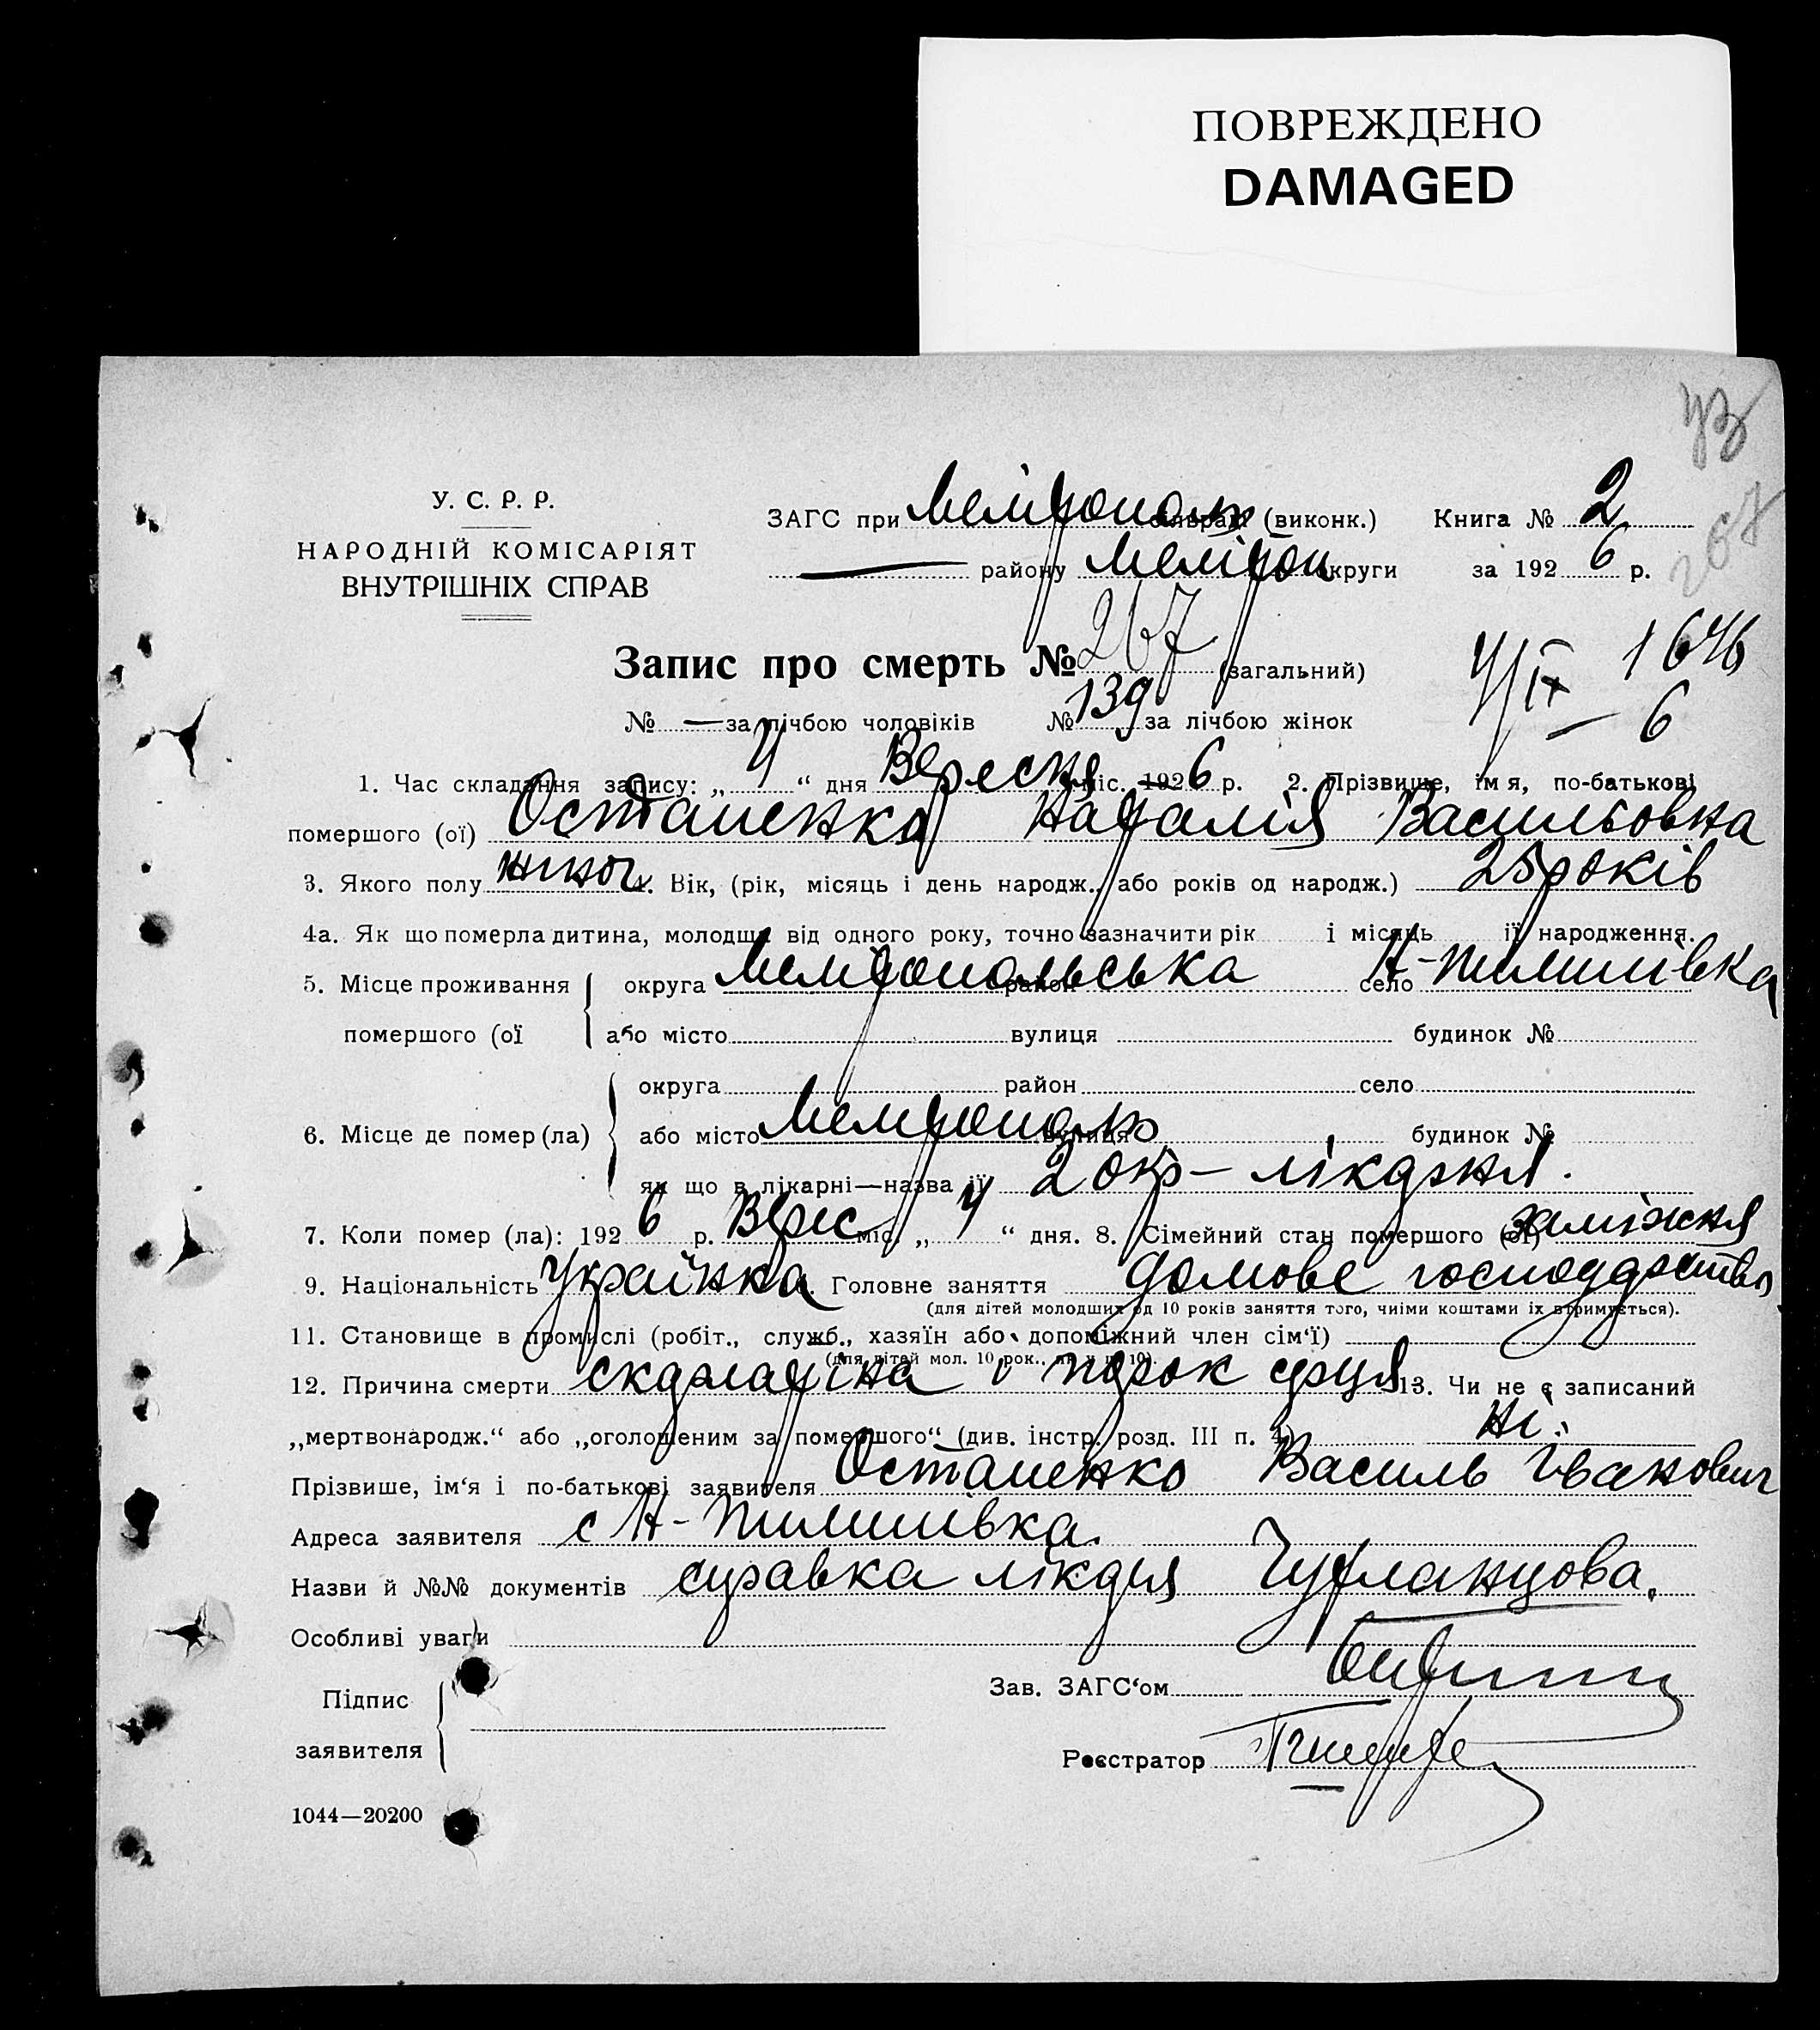 ПОВРЕЖДЕНО
DAMAGED
У. С. Р. Р.
НАРОДНІЙ КОМІСАРІЯТ
ВНУТРІШНІХ СПРАВ
ЗАГС при Мелітополь сільраді (виконк.) Книга № 2
— району Мелітоп округи за 1926 р.
267
Запис про смерть № 267 (загальний)
4/IX 6
№ — за лічбою чоловіків № 139 за лічбою жінок
1. Час складання запису: „ 4 “ дня Вересня міс. 1926 р. 2. Прізвище, імя, по-батькові
помершого (ої) Остапенко Наталія Васильовна
3. Якого полу жіноч. Вік, (рік, місяць і день народж., або років од народж.) 25 років
4а. Як що померла дитина, молодша від одного року, точно зазначити рік і місяць її народження.
5. Місце проживання округа Мелітопольська район село Н-Пилипівка
помершого (ої або місто вулиця будинок №
округа район село
6. Місце де помер (ла) або місто Мелітополь вулиця будинок №
як що в лікарні—назва її 2 окр- лікарня.
7. Коли помер (ла): 1926 р. Верес міс. „ 4 “ дня. 8. Сімейний стан помершого (ої) заміжня
9. Національність Українка. Головне заняття домове господарство
(для дітей молодших од 10 років заняття того, чиїми коштами їх втримується).
11. Становище в промислі (робіт., служб., хазяїн або допоміжний член сім'ї)
(для дітей мол. 10 рок., як у п. 10).
12. Причина смерти скарлатіна і порок серця 13. Чи не є записаний
„мертвонародж.“ або „оголошеним за помершого“ (див. інстр. розд. III п. 4) Ні.
Прізвище, ім'я і по-батькові заявителя Остапенко Василь Іванович
Адреса заявителя с Н-Пилипівка.
Назви й №№ документів справка лікаря
Особливі уваги
Підпис
заявителя
Зав. ЗАГС'ом
Реєстратор
1044—20200